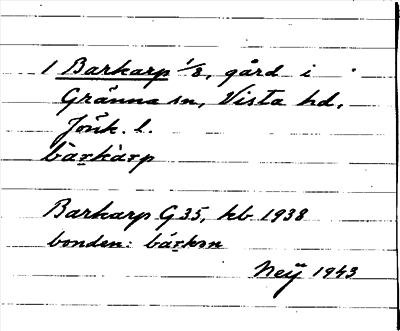 1 Barkarp 1/8, gård i
Gränna sn, Vista hd,
Jönk. l.
bàrkàrp
Barkarp G35, kb 1938
bonden: bárksn
Neij 1943